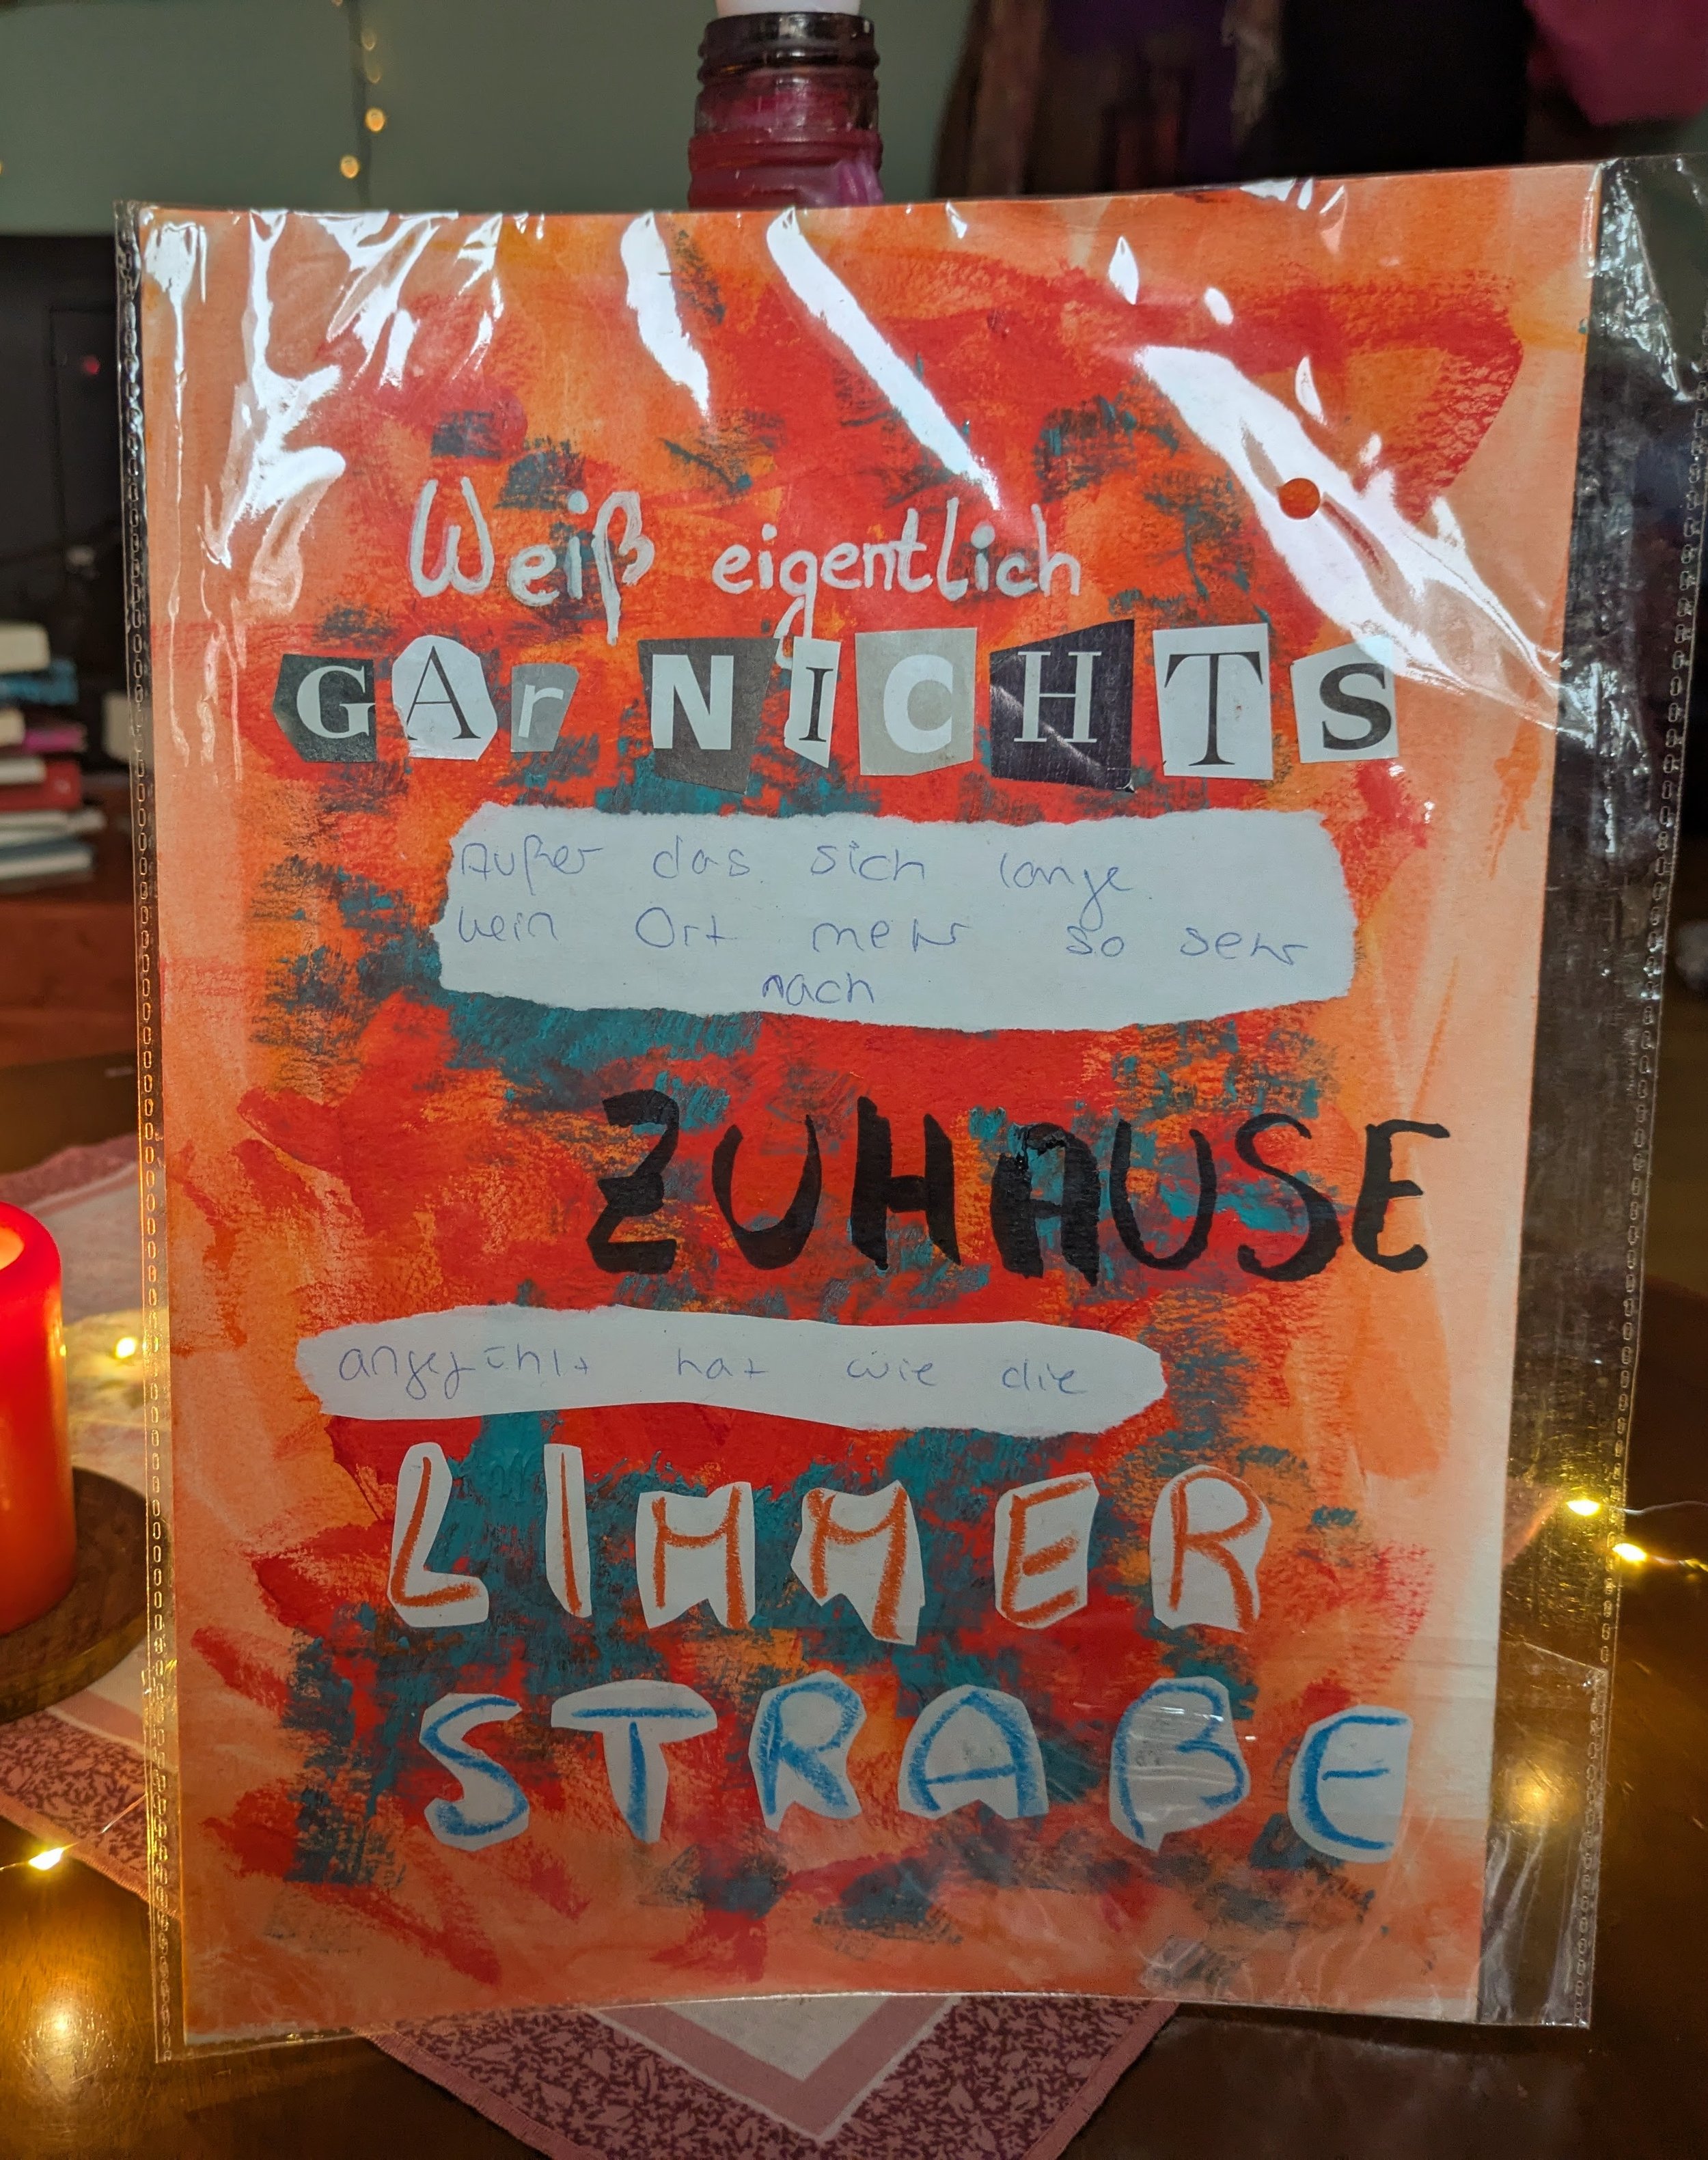 Weiß eigentlich
GAr NICHTS
Außer das sich lange
kein Ort mehr so sehr
nach
ZUHAUSE
angefühlt hat wie die
LIMMER
STRAßE